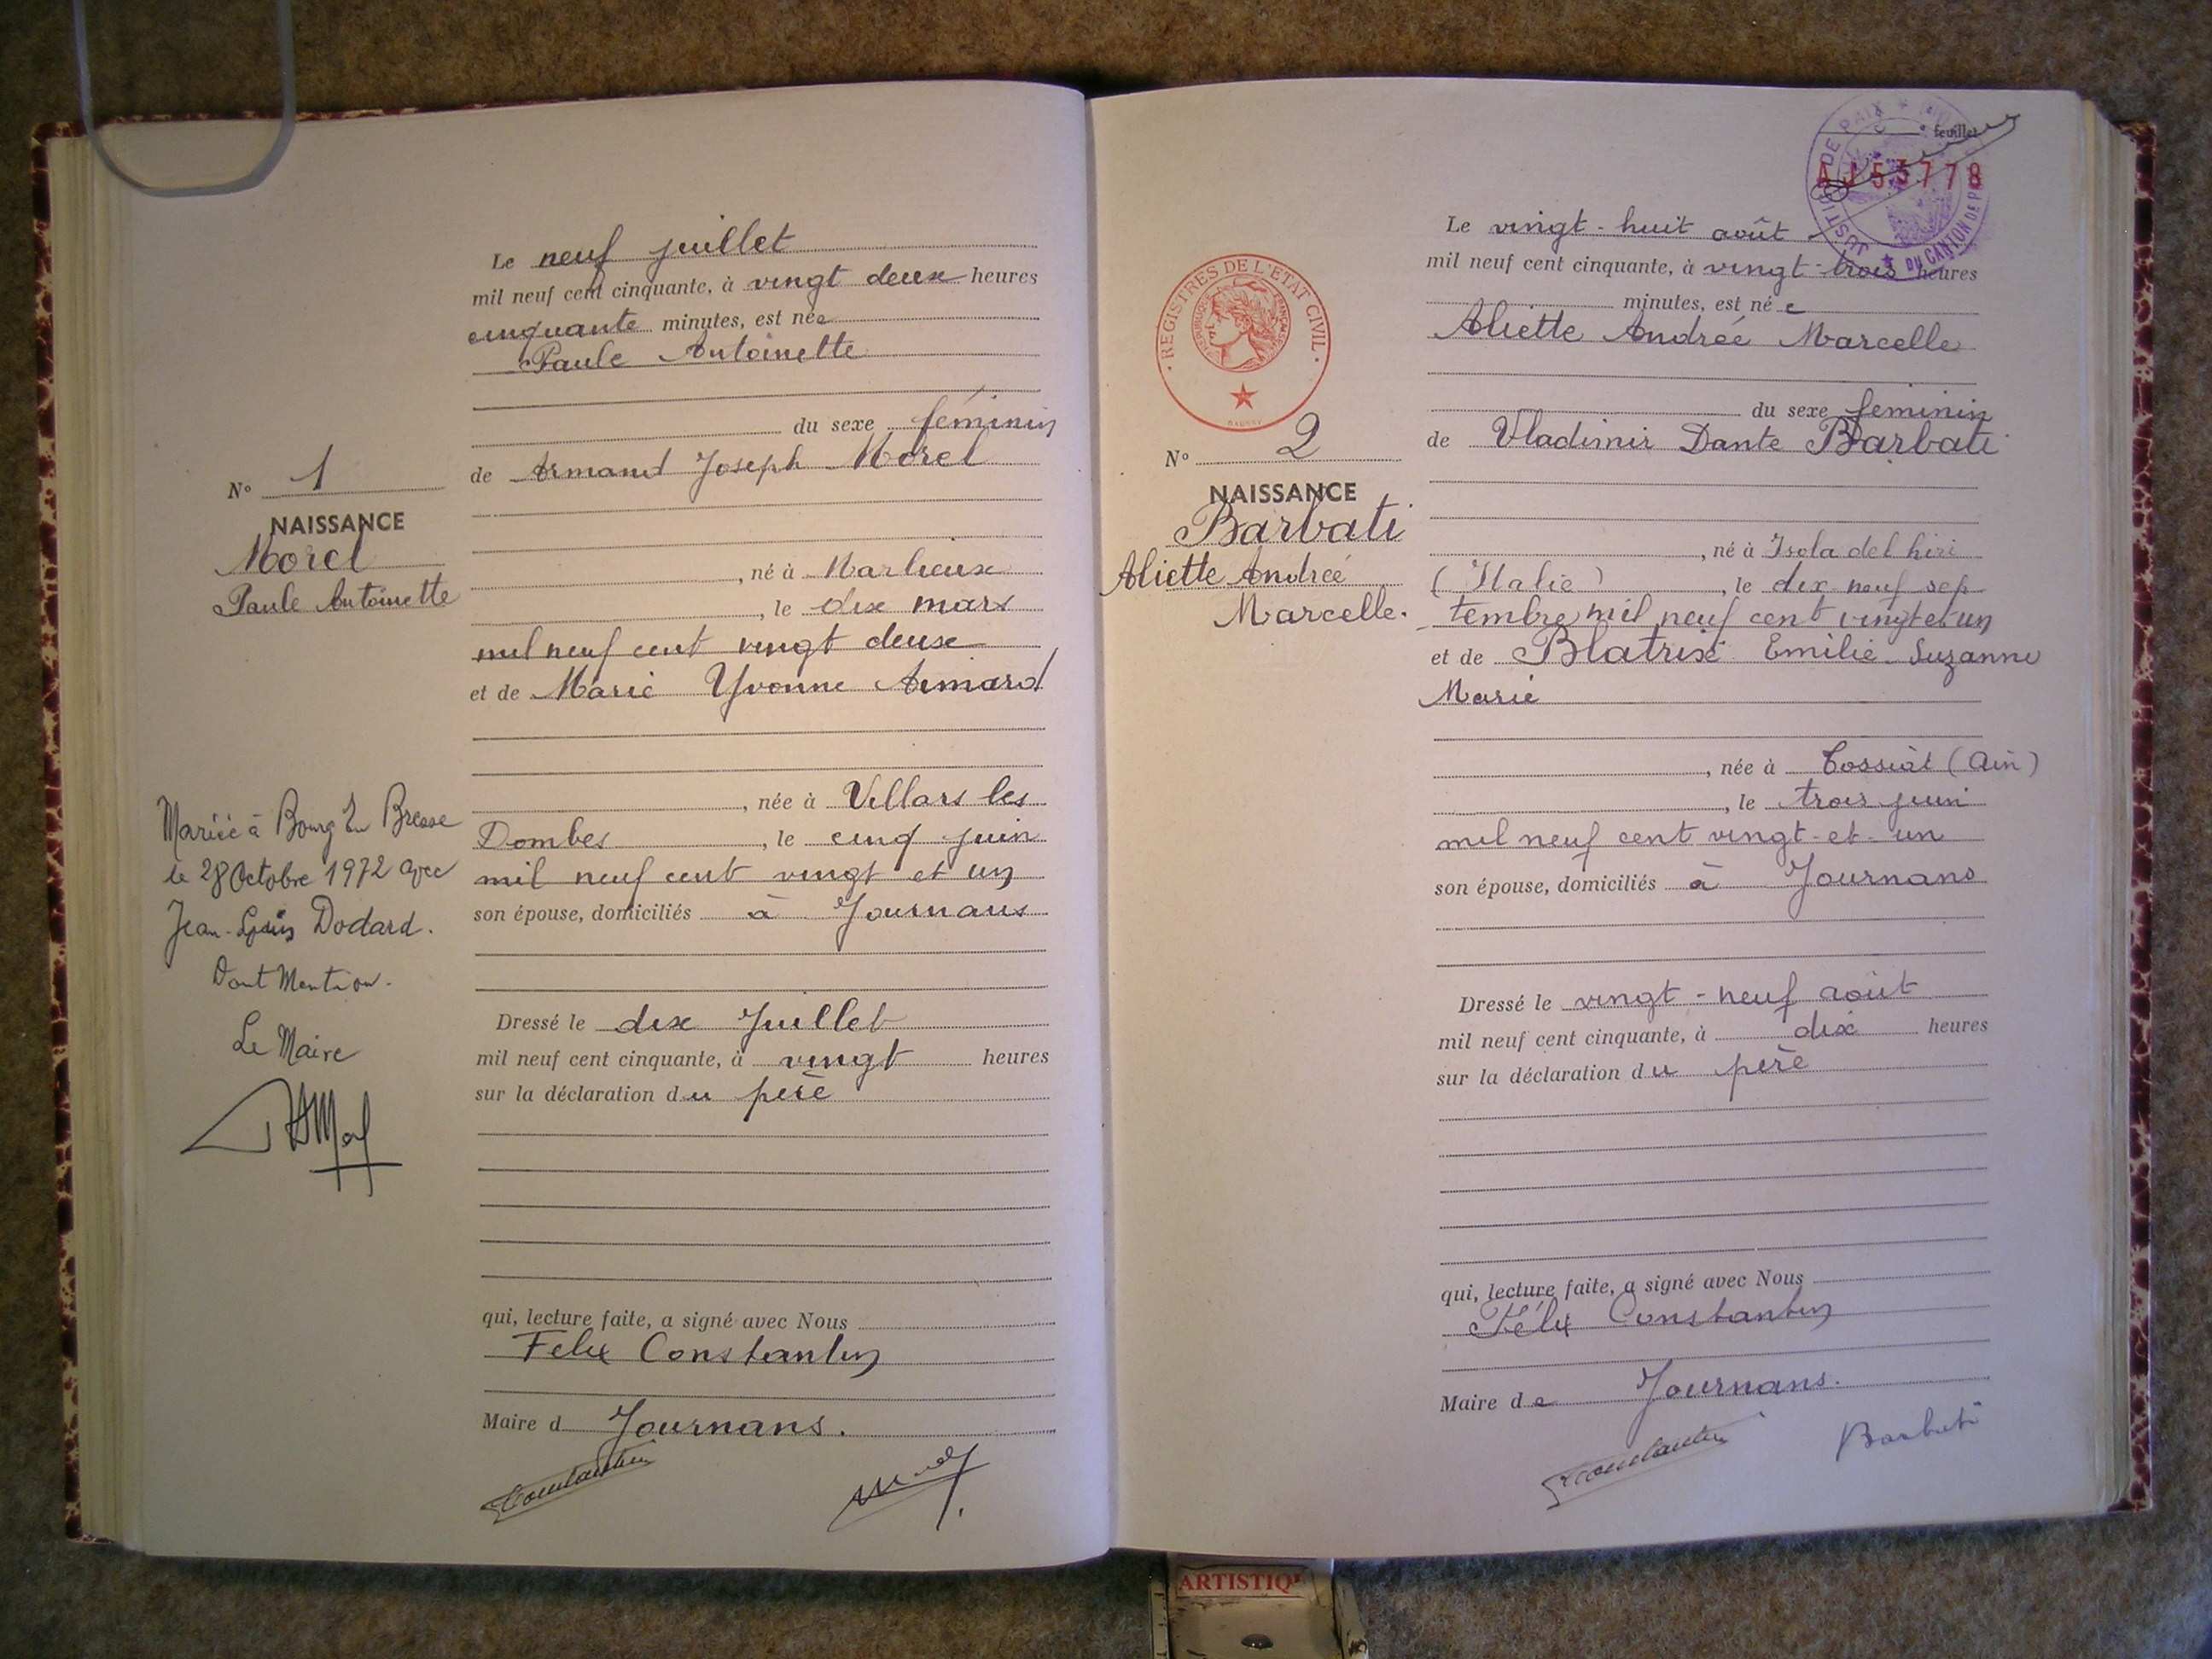 Le neuf juillet
mil neuf cent cinquante, à vingt deux heures
cinquante minutes, est née
Paule Antoinette
du sexe féminin
de Armand Joseph Morel
N° 1
NAISSANCE
Morel
Paule Antoinette
, né à Marlieux
, le dix mars
mil neuf cent vingt deux
et de Marie Yvonne Aimard
, née à Villars les
Dombes , le cinq juin
mil neuf cent vingt et un
son épouse, domiciliés à Journans
Mariée à Bourg En Bresse
le 28 Octobre 1972 avec
Jean-Louis Dodard.
Dont Mention.
Le Maire
Dressé le dix Juillet
mil neuf cent cinquante, à vingt heures
sur la déclaration du père
qui, lecture faite, a signé avec Nous
Felix Constantin
Maire d Journans.
Constantin
feuillet
AJ55778
JUSTICE DE PAIX
DU CANTON DE P
Le vingt-huit août
mil neuf cent cinquante, à vingt-trois heures
minutes, est née
Aliette Andréé Marcelle
du sexe feminin
de Vladimir Dante Barbati
REGISTRES DE L'ETAT CIVIL
REPUBLIQUE FRANÇAISE
N° 2
NAISSANCE
Barbati
Aliette Andréé
Marcelle.
, né à Isola del hiri
(Italie) , le dix neuf sep
tembre mil neuf cent vingt et un
et de Blatrix Emilie Suzanne
Marie
, née à Tossiat (Ain)
, le trois juin
mil neuf cent vingt-et-un
son épouse, domiciliés à Journans
Dressé le vingt-neuf août
mil neuf cent cinquante, à dix heures
sur la déclaration du père
qui, lecture faite, a signé avec Nous
Félix Constantin
Maire de Journans.
Constantin
Barbati
ARTISTIQ